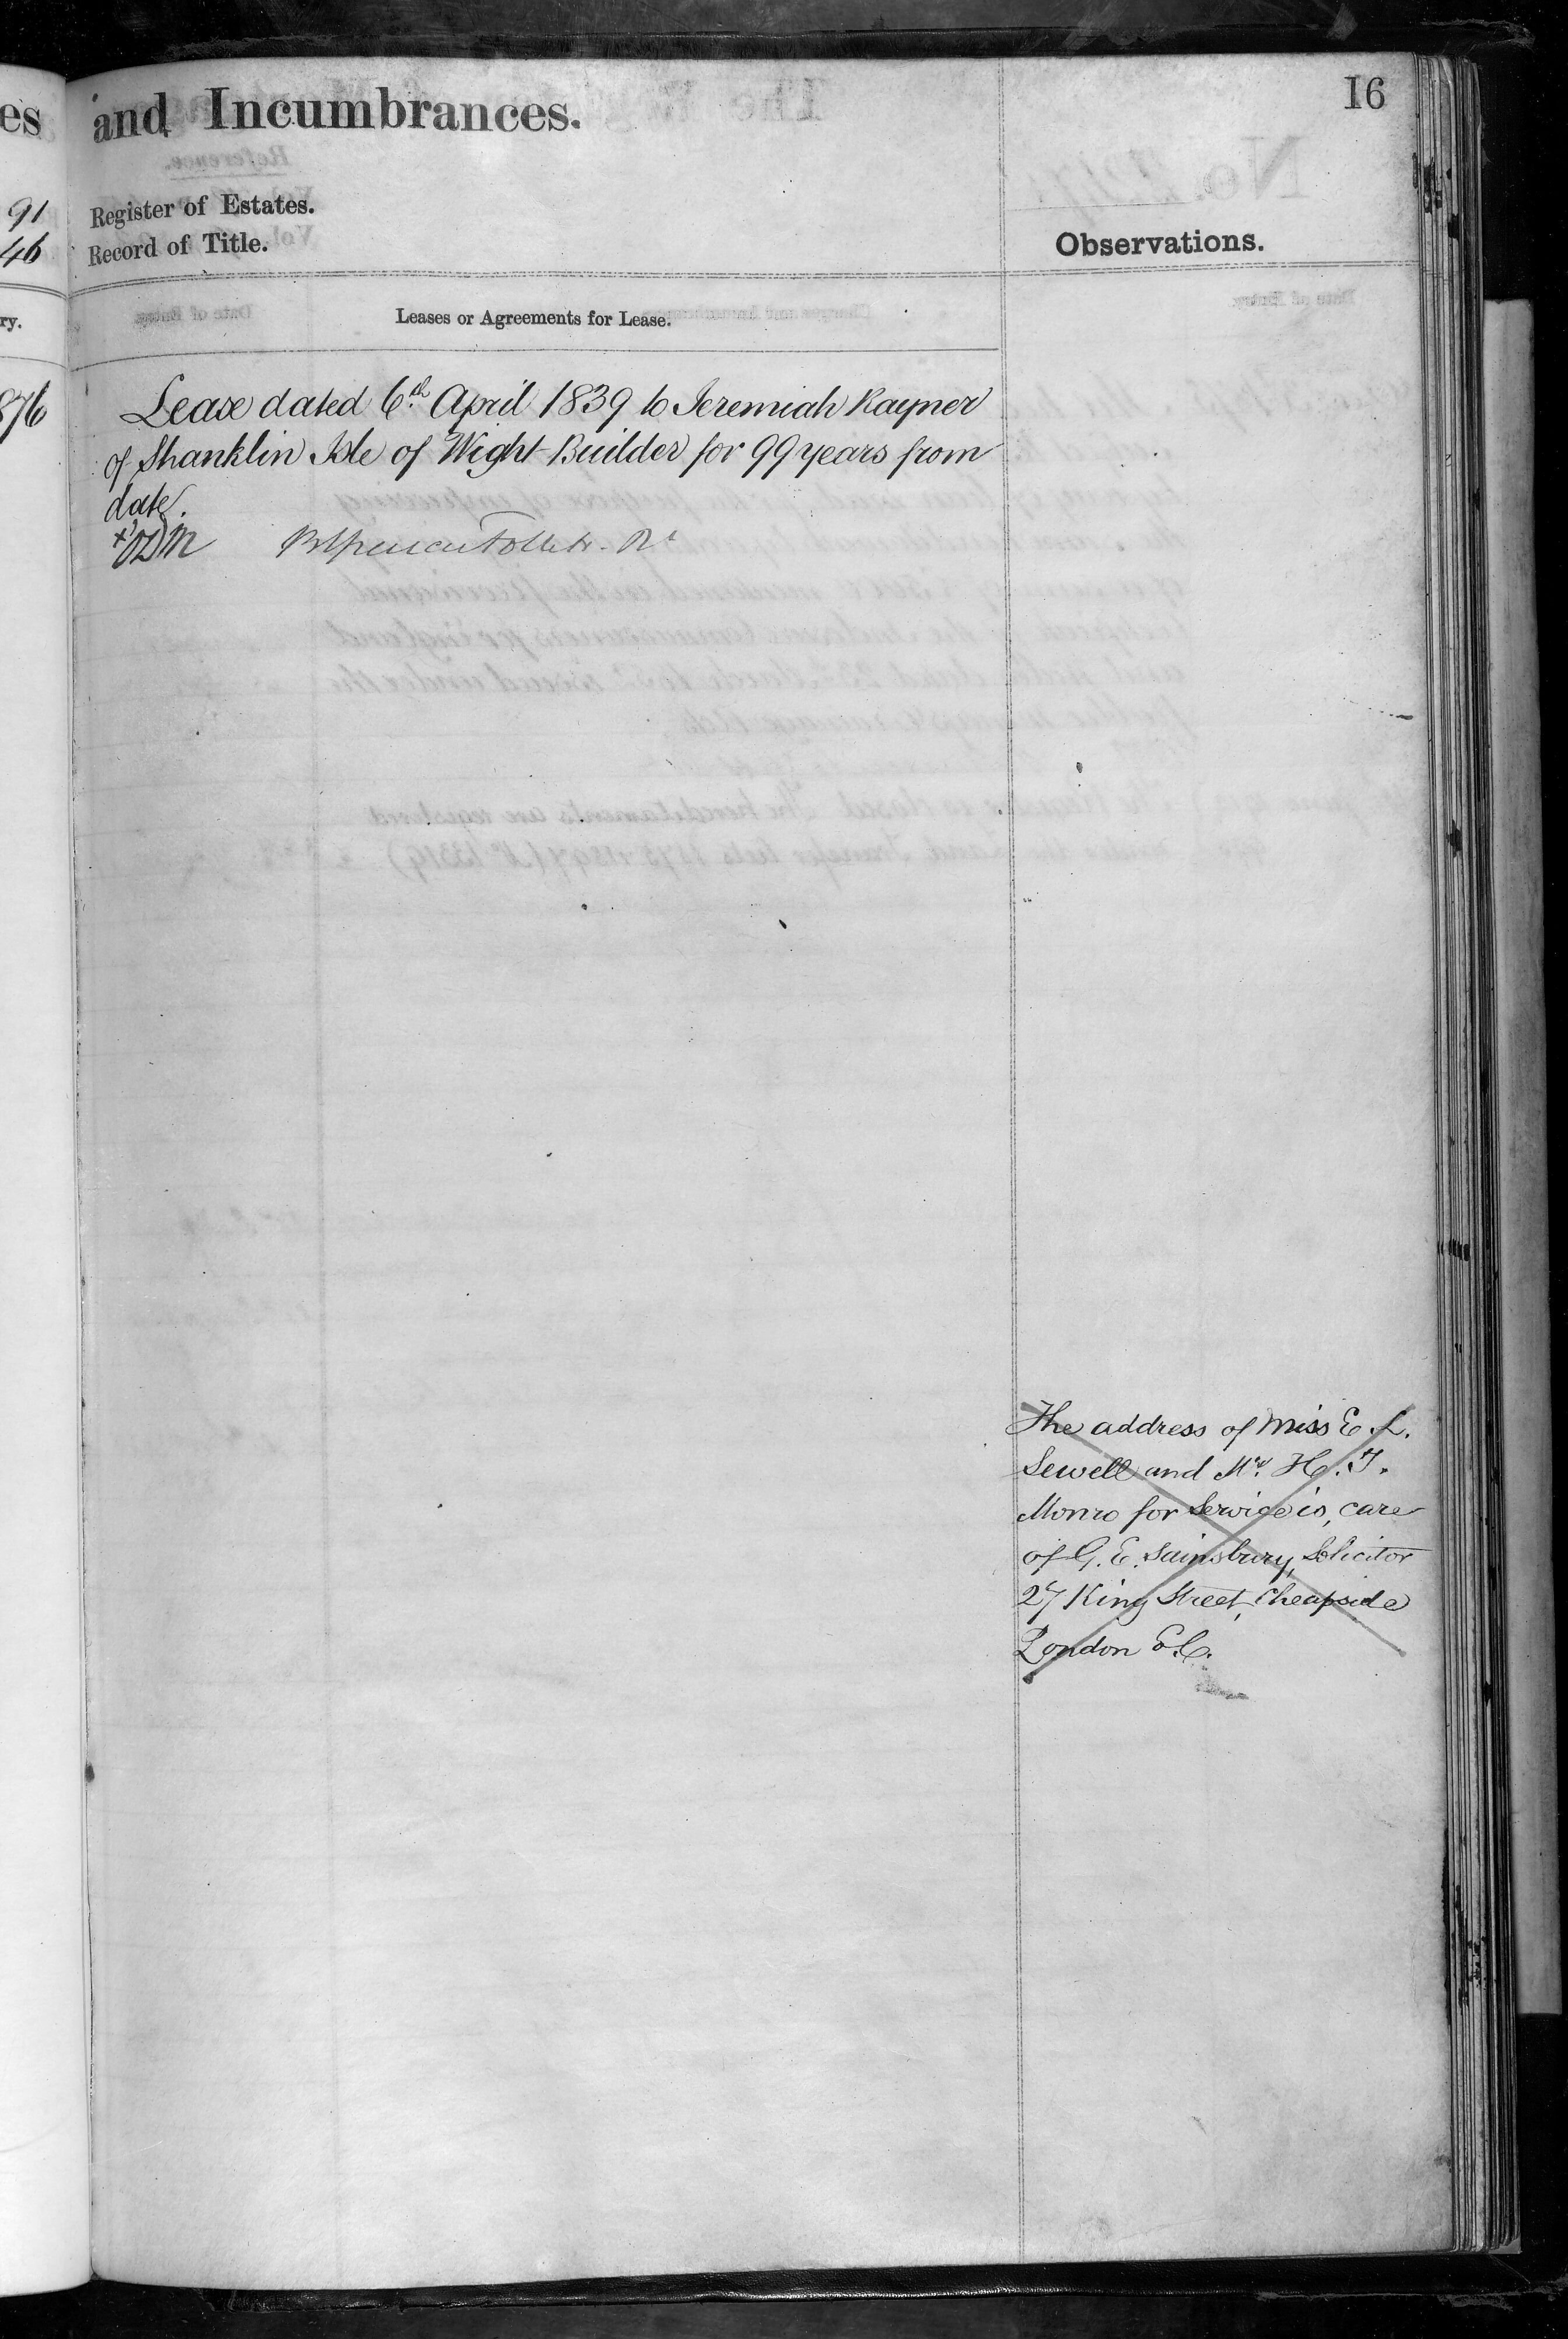 es
and Incumbrances.
16
91
Register of Estates.
46
Record of Title.
Observations.
ry.
Leases or Agreements for Lease.
876
Lease dated 6th April 1839 to Jeremiah Rayner
of Shanklin Isle of Wight Builder for 99 years from
date.
The address of Miss E. L.
Sewell and Mr. H. T.
Monro for Service is, care
of G. E. Sainsbury, Solicitor
27 King Street, Cheapside
London E.C.